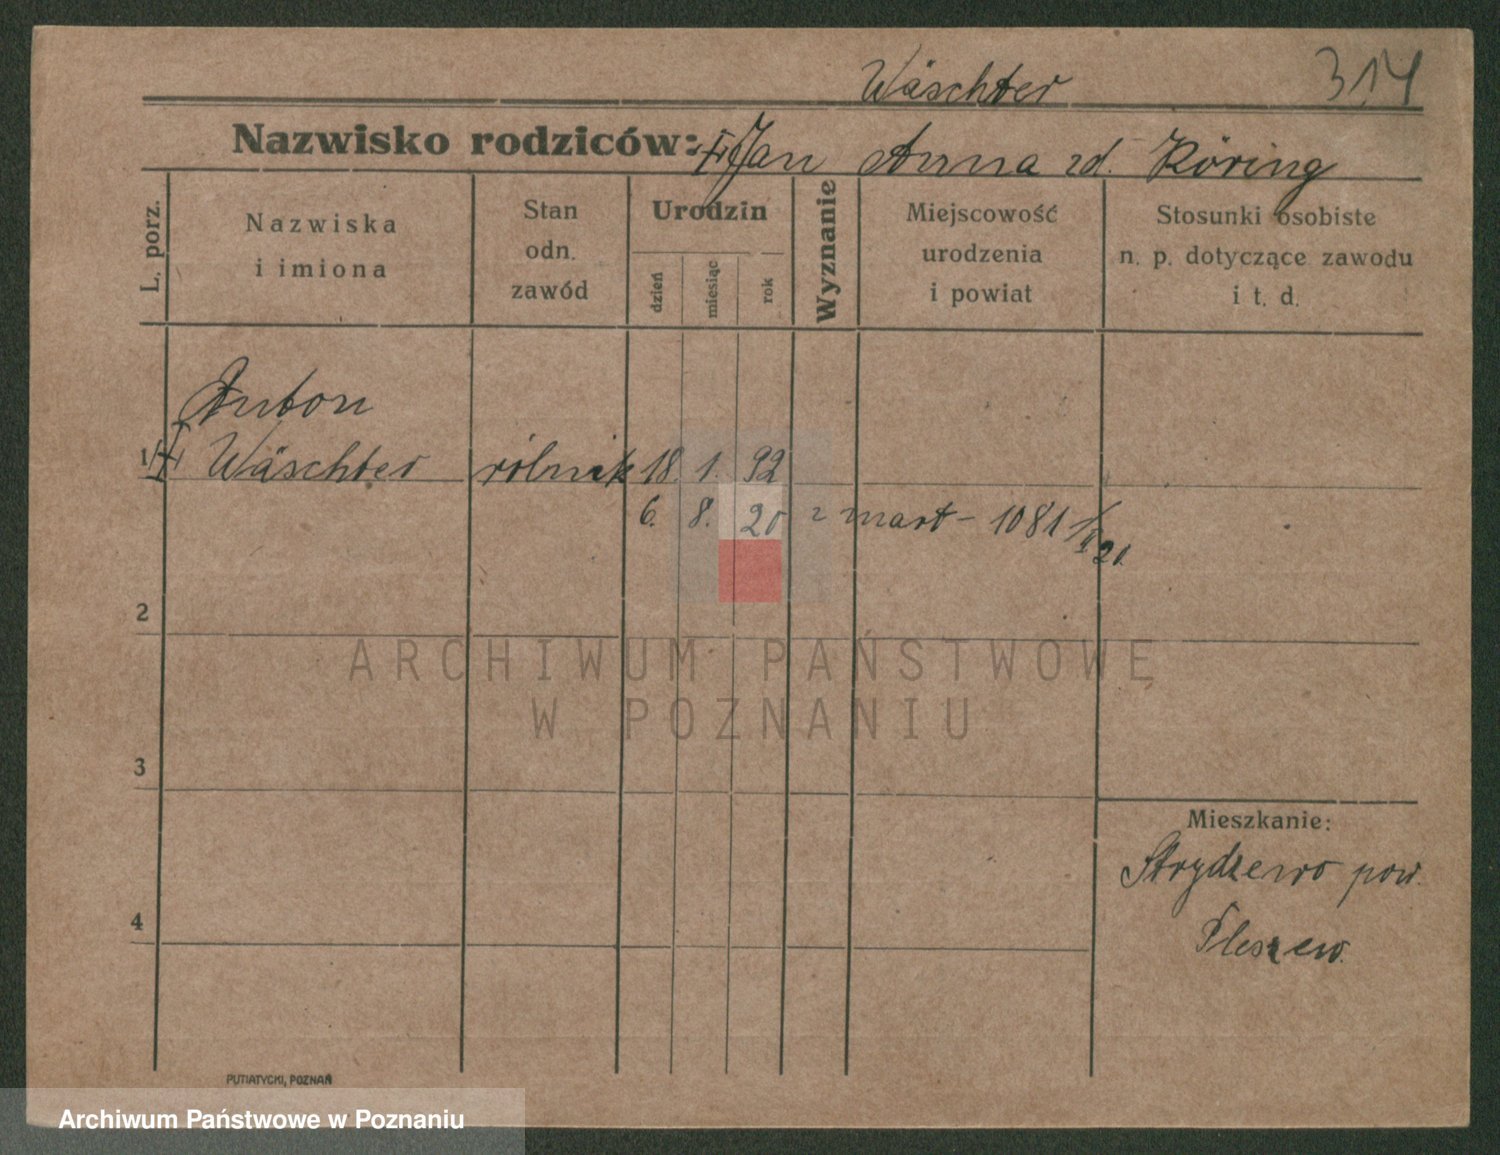 Wäschter 314
Nazwisko rodziców: Jan Anna zd. Röring
L. porz.
Nazwiska
i imiona
Stan
odn.
zawód
Urodzin
dzień
miesiąc
rok
Wyznanie
Miejscowość
urodzenia
i powiat
Stosunki osobiste
n. p. dotyczące zawodu
i t. d.
Anton
1 Wäschter rólnik 18. 1. 92
6. 8. 20 zmart - 1081
20.
2
ARCHIWUM PAŃSTWOWE
W POZNANIU
3
Mieszkanie:
Strydzewo pow.
Pleszew.
4
PUTIATYCKI, POZNAŃ
Archiwum Państwowe w Poznaniu